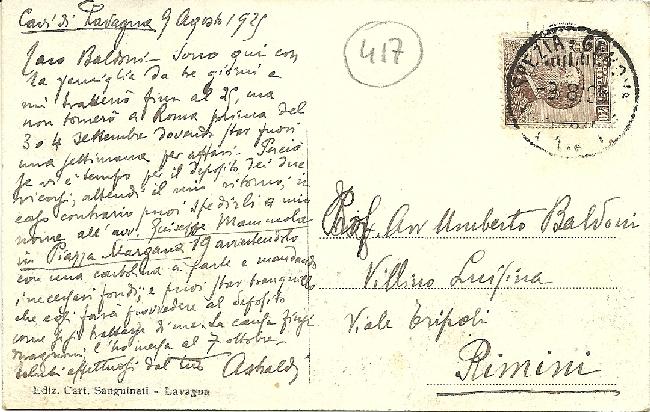 Cavi di Lavagna 9 Agosto 1925
Caro Baldoni - Sono qui con
la famiglia da tre giorni e
mi tratterrò fino al 25, ma
non tornerò a Roma prima del
3 o 4 settembre dovendo star fuori
una settimana per affari. Perciò
se vi è tempo per il deposito dei due
ricorsi, attendi il mio ritorno; in
caso contrario puoi spedirli a mio
nome all'avv. Giuseppe Mammola
in Piazza Margana 19 avvertendolo
con una cartolina a parte e mandando
i necessari fondi; e puoi star tranquillo
che egli farà provvedere al deposito
come se si trattasse di me. La causa
l'ho al 7 ottobre.
Saluti affettuosi dal tuo
Ediz. Cart. Sanguineti - Lavagna
417
SPEZIA - GENOVA
Prof. Avv Umberto Baldoni
Villino Luisina
Viale Tripoli
Rimini